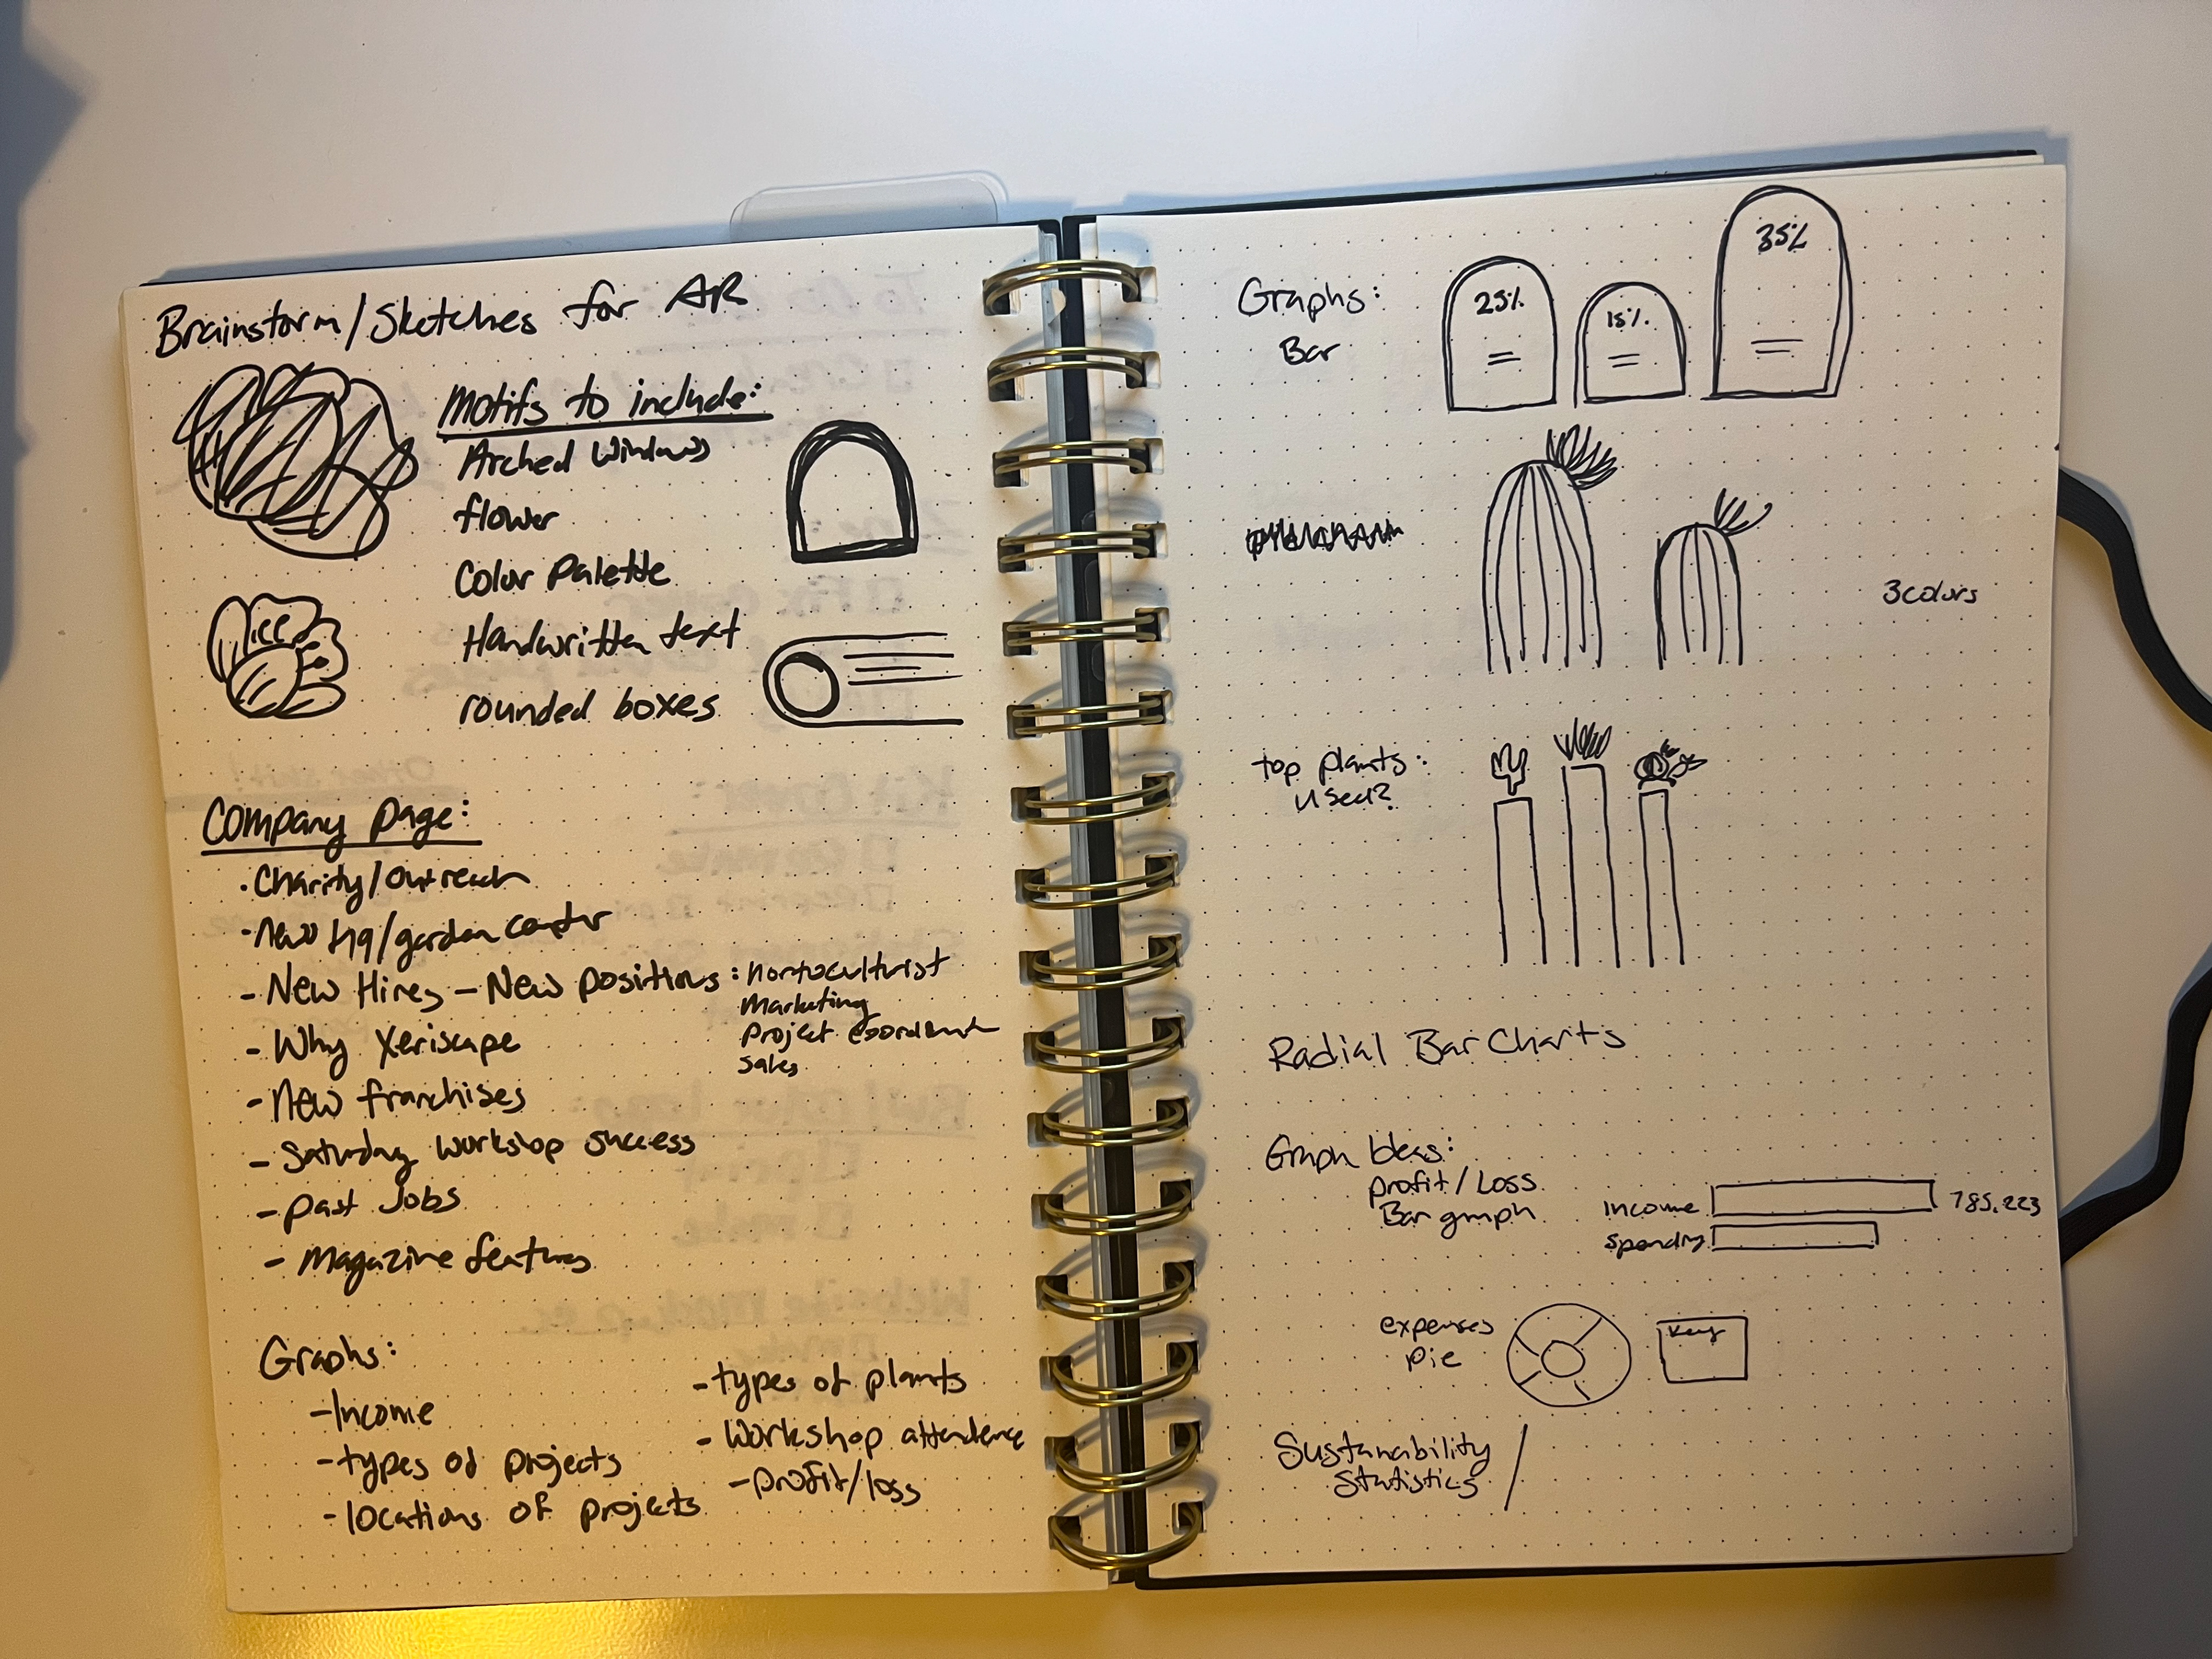 Brainstorm/Sketches for AR
Motifs to include:
Arched Windows
flower
Color Palette
Handwritten text
rounded boxes
Company page:
· Charity/Outreach
· New HQ/garden center
- New Hires - New positions: hortoculturist
Marketing
Project
Sales
- Why Xeriscape
- New franchises
- Saturday workshop success
- past Jobs
- Magazine features
Graphs:
- Income
- types of projects
- locations of projects
- types of plants
- Workshop attendence
- profit/loss
Graphs:
Bar
25%
15%
35%
3 colors
top plants:
used?
Radial Bar Charts
Graph Ideas:
profit/Loss
Bar graph
income 785,223
spending
expenses
pie
key
Sustanability
Statistics